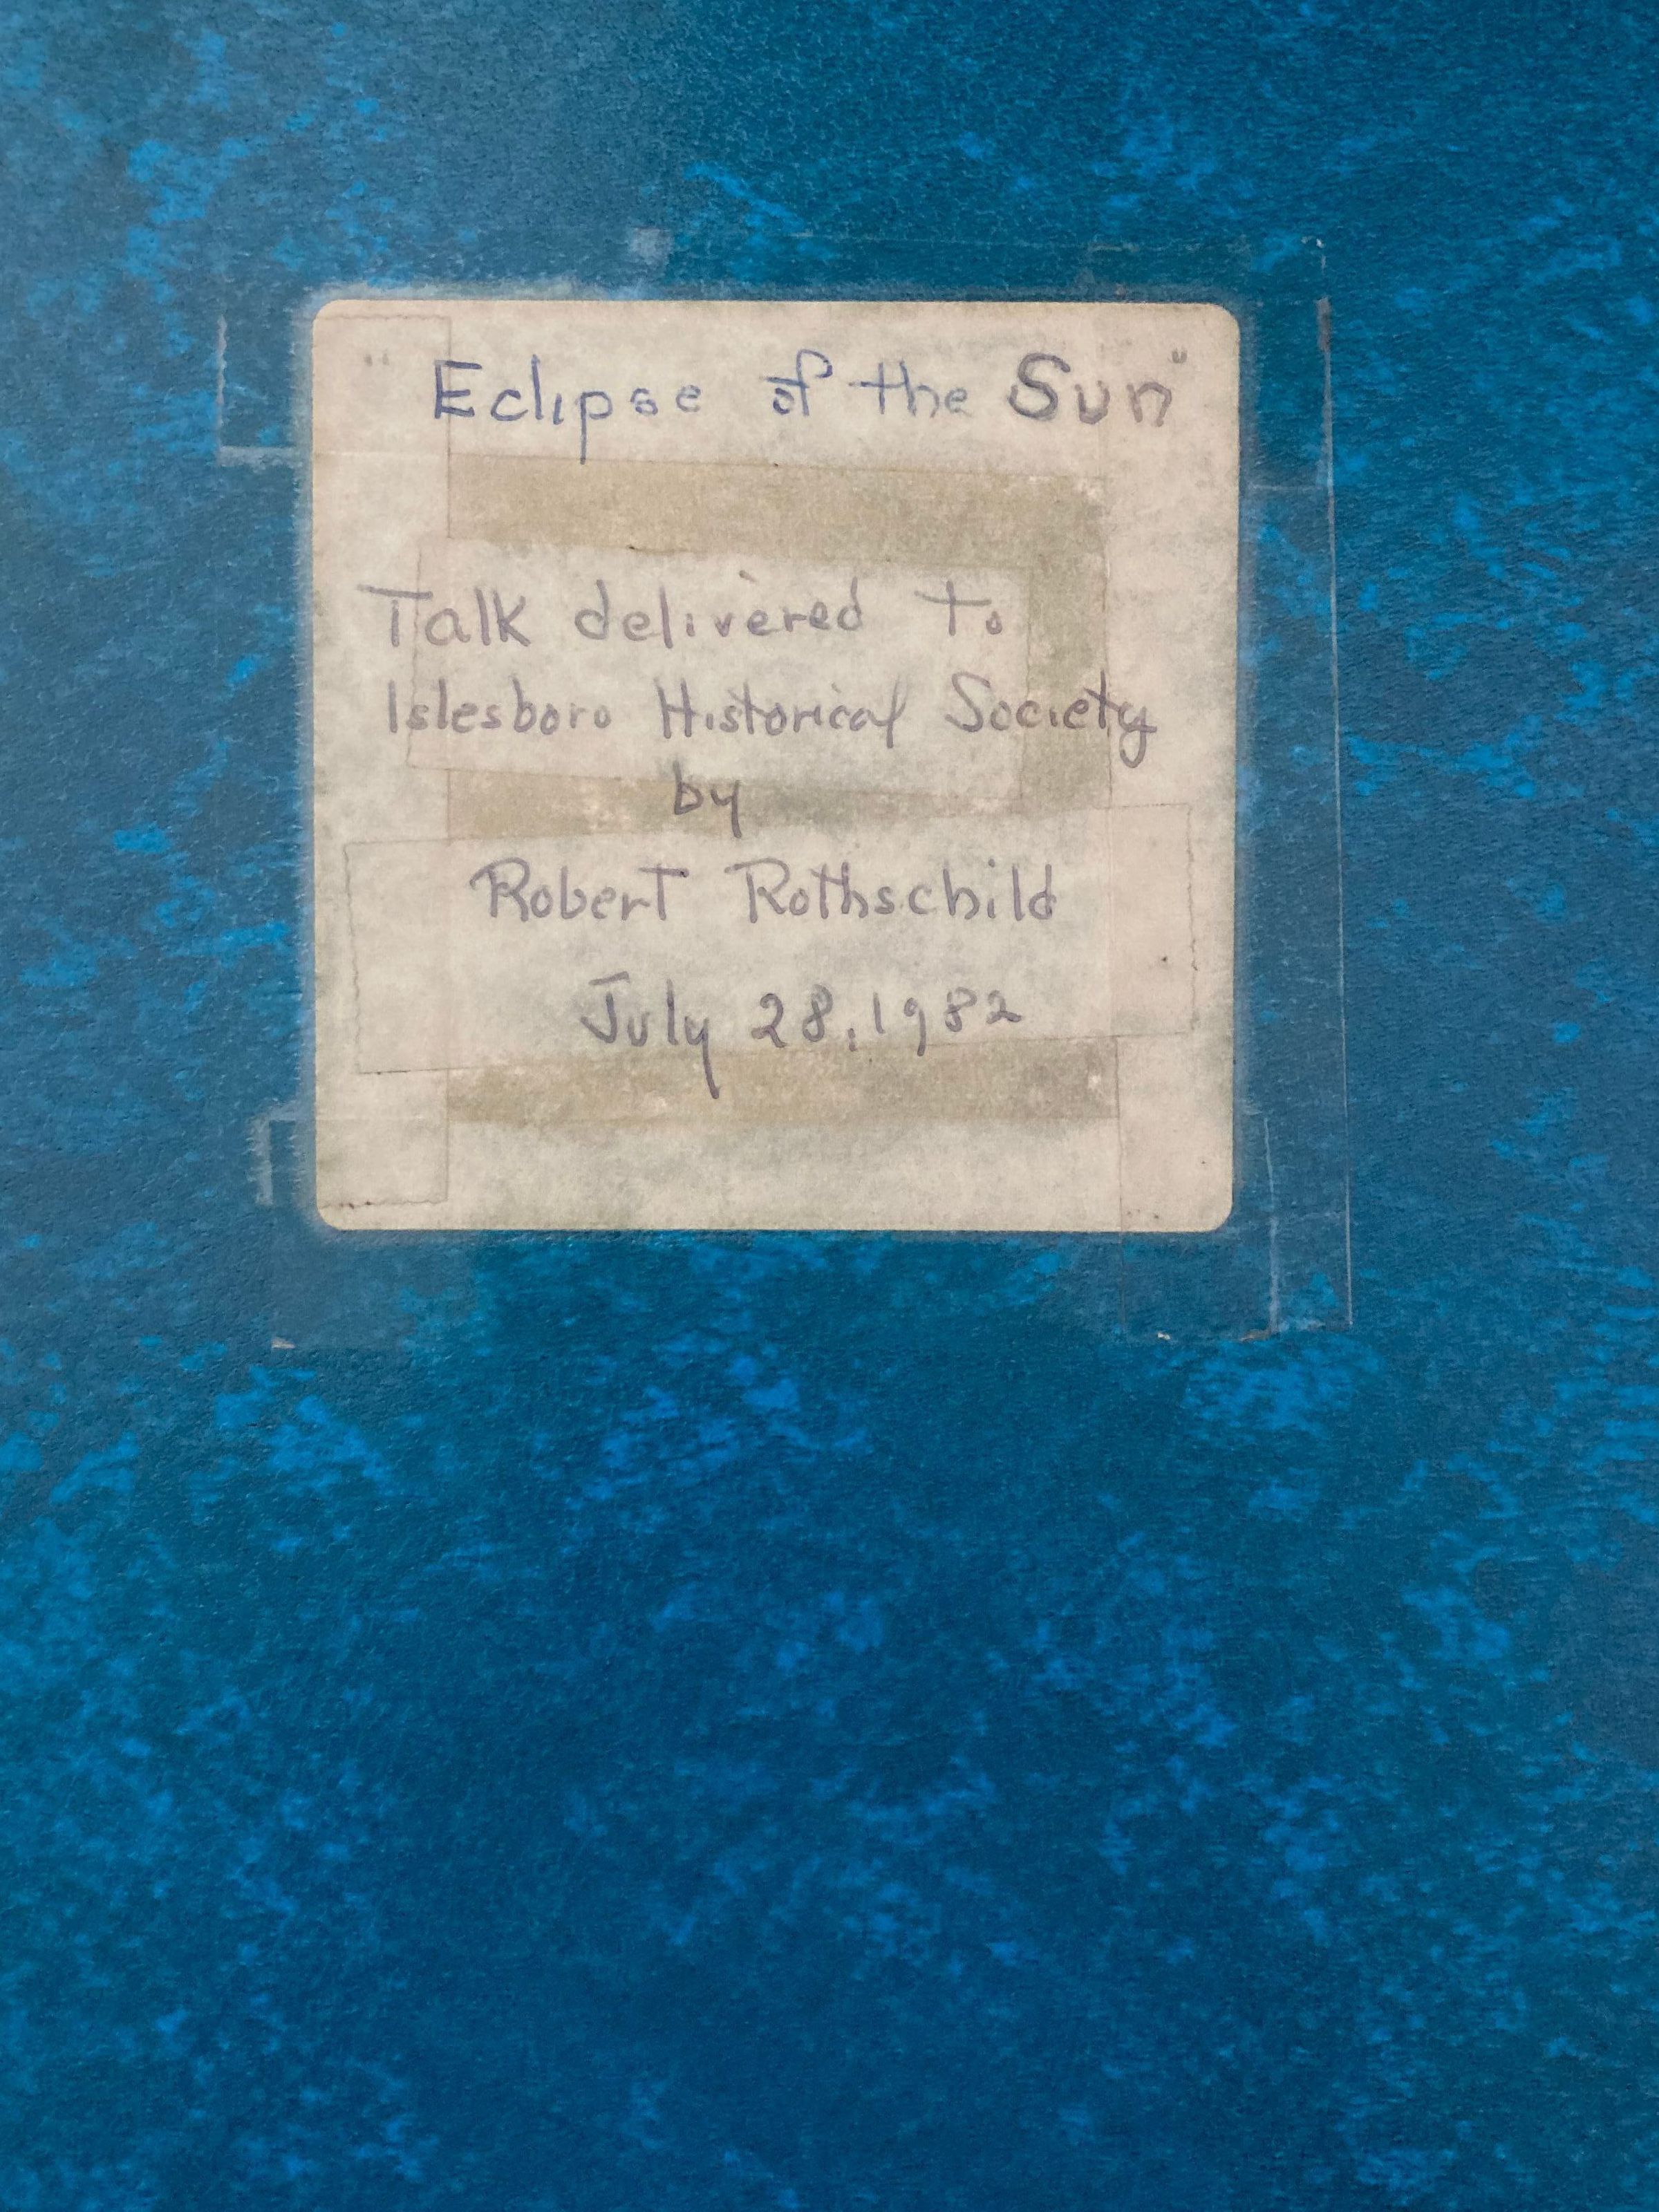 "Eclipse of the Sun"
Talk delivered to
Islesboro Historical Society
by
Robert Rothschild
July 28, 1982